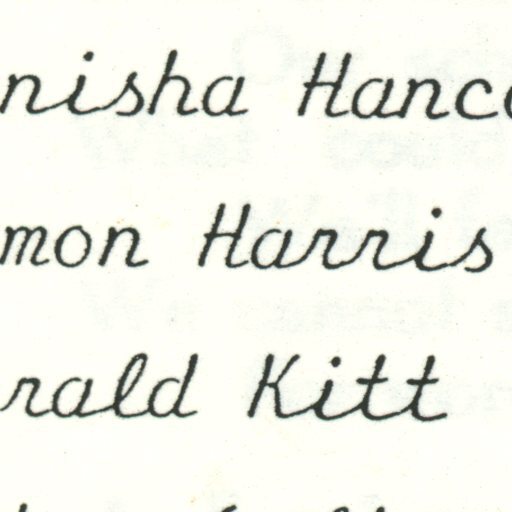 nisha Hanc
mon Harris
rald Kitt